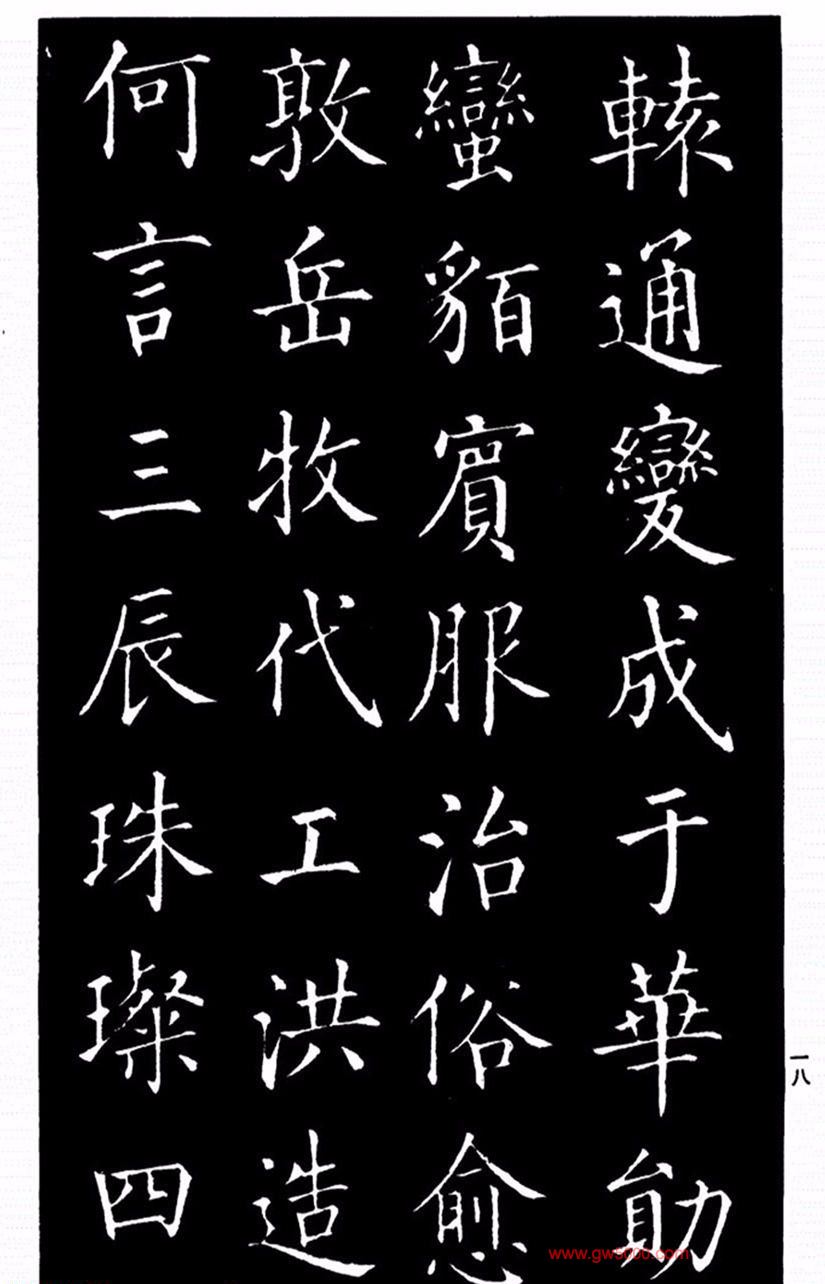 轅通變成于華勛
蠻貊賓服治俗愈
敦岳牧代工洪造
何言三辰珠璨四
一八
www.gw5000.com